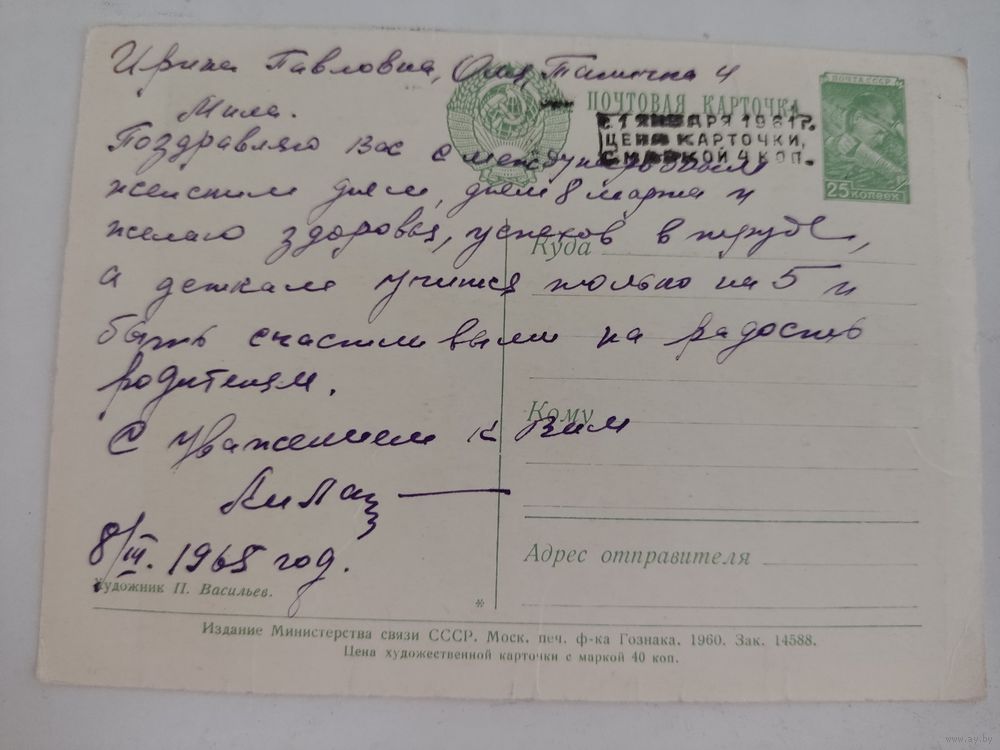 Ирина Павловна, Оля, Танечка и
Мила.
ПОЧТА СССР
ПОЧТОВАЯ КАРТОЧКА
С 1 ЯНВАРЯ 1961 г.
ЦЕНА КАРТОЧКИ,
С МАРКОЙ 4 КОП.
25 копеек
Поздравляю Вас с международным
женским днём, днём 8 марта и
желаю здоровья, успехов в труде,
а деткам учится только на 5 и
быть счастливыми на радость
родителям.
С уважением к Вам
8/III. 1965 год.
Куда
Кому
Адрес отправителя
Художник П. Васильев.
*
Издание Министерства связи СССР. Моск. печ. ф-ка Гознака. 1960. Зак. 14588.
Цена художественной карточки с маркой 40 коп.
www.ay.by